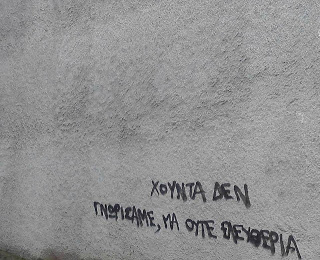 ΧΟΥΝΤΑ ΔΕΝ
ΓΝΩΡΙΣΑΜΕ, ΜΑ ΟΥΤΕ ΕΛΕΥΘΕΡΙΑ